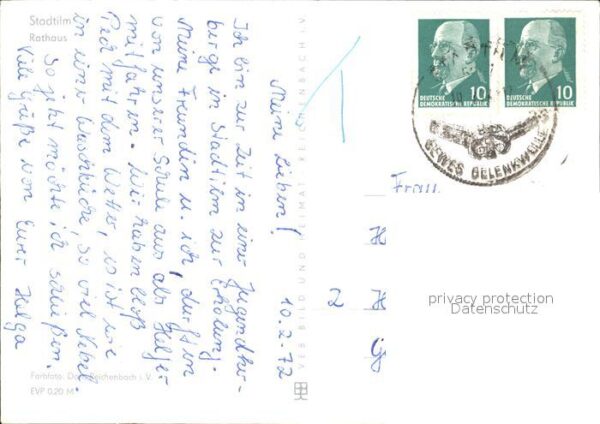 Stadtilm
Rathaus
10.2.72
Meine Lieben!
Ich bin zur Zeit in einer Jugendher-
berge in Stadtilm zur Erholung.
Meine Freundin u. ich, durften
von unserer Schule aus als Helfer
mitfahren. Wir haben bloß
Pech mit dem Wetter, es ist wie
in einer Waschküche, so viel Nebel.
So jetzt möchte ich schließen.
Viele Grüße von Eurer Helga
VEB BILD UND HEIMAT REICHENBACH i. V.
Farbfoto: Reichenbach i. V.
EVP 0,20 M
10
DEUTSCHE
DEMOKRATISCHE REPUBLIK
10
DEUTSCHE
DEMOKRATISCHE REPUBLIK
GELENKWELLE
Frau
2
privacy protection
Datenschutz